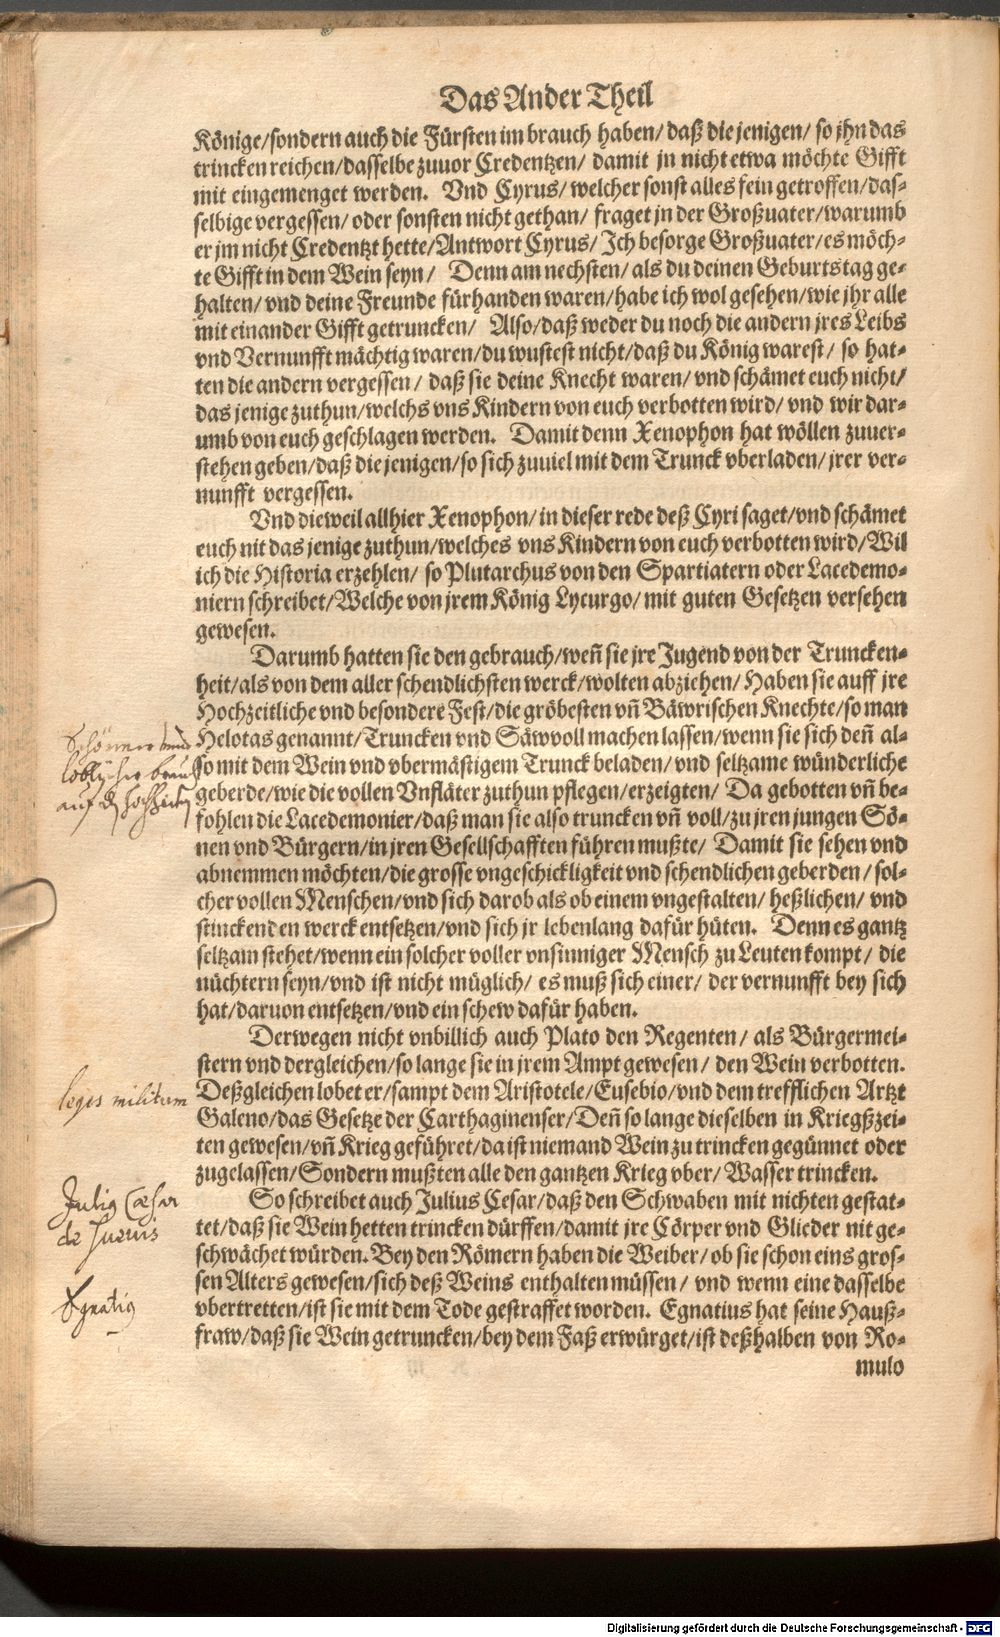 Das Ander Theil
Könige/sondern auch die Fürsten im brauch haben/ daß die jenigen/ so jhn das
trincken reichen/dasselbe zuuor Credentzen/ damit jn nicht etwa möchte Gifft
mit eingemenget werden. Vnd Cyrus/ welcher sonst alles fein getroffen/das-
selbige vergessen/ oder sonsten nicht gethan/ fraget jn der Großuater/warumb
er jm nicht Credentzt hette/Antwort Cyrus/ Ich besorge Großuater/es möch-
te Gifft in dem Wein seyn/ Denn am nechsten/ als du deinen Geburtstag ge-
halten/ vnd deine Freunde fürhanden waren/habe ich wol gesehen/wie jhr alle
mit einander Gifft getruncken/ Also/daß weder du noch die andern jres Leibs
vnd Vernunfft mächtig waren/du wustest nicht/daß du König warest/ so hat-
ten die andern vergessen/ daß sie deine Knecht waren/ vnd schämet euch nicht/
das jenige zuthun/welchs vns Kindern von euch verbotten wird/ vnd wir dar-
umb von euch geschlagen werden. Damit denn Xenophon hat wöllen zuuer-
stehen geben/daß die jenigen/so sich zuuiel mit dem Trunck vberladen/jrer ver-
nunfft vergessen.
Vnd dieweil allhier Xenophon/ in dieser rede deß Cyri saget/vnd schämet
euch nit das jenige zuthun/welches vns Kindern von euch verbotten wird/Wil
ich die Historia erzehlen/ so Plutarchus von den Spartiatern oder Lacedemo-
niern schreibet/Welche von jrem König Lycurgo/ mit guten Gesetzen versehen
gewesen.
Darumb hatten sie den gebrauch/weñ sie jre Jugend von der Truncken-
heit/als von dem aller schendlichsten werck/wolten abziehen/ Haben sie auff jre
Hochzeitliche vnd besondere Fest/die gröbesten vñ Bäwrischen Knechte/so man
Helotas genannt/Truncken vnd Säwvoll machen lassen/wenn sie sich deñ al-
so mit dem Wein vnd vbermästigem Trunck beladen/ vnd seltzame wünderliche
geberde/wie die vollen Vnfläter zuthun pflegen/erzeigten/ Da gebotten vñ be-
fohlen die Lacedemonier/daß man sie also truncken vñ voll/zu jren jungen Sö-
nen vnd Bürgern/in jren Gesellschafften führen mußte/ Damit sie sehen vnd
abnemmen möchten/die grosse vngeschickligkeit vnd schendlichen geberden/ sol-
cher vollen Menschen/vnd sich darob als ob einem vngestalten/ heßlichen/ vnd
stinckenden werck entsetzen/vnd sich jr lebenlang dafür hüten. Denn es gantz
seltzam stehet/wenn ein solcher voller vnsinniger Mensch zu Leuten kompt/ die
nüchtern seyn/vnd ist nicht müglich/ es muß sich einer/ der vernunfft bey sich
hat/daruon entsetzen/vnd ein schew dafür haben.
Derwegen nicht vnbillich auch Plato den Regenten/ als Bürgermei-
stern vnd dergleichen/so lange sie in jrem Ampt gewesen/ den Wein verbotten.
Deßgleichen lobet er/sampt dem Aristotele/Eusebio/vnd dem trefflichen Artzt
Galeno/das Gesetze der Carthaginenser/Deñ so lange dieselben in Kriegßzei-
ten gewesen/vñ Krieg geführet/da ist niemand Wein zu trincken gegünnet oder
zugelassen/Sondern mußten alle den gantzen Krieg vber/ Wasser trincken.
So schreibet auch Julius Cesar/daß den Schwaben mit nichten gestat-
tet/daß sie Wein hetten trincken dürffen/damit jre Cörper vnd Glieder nit ge-
schwächet würden. Bey den Römern haben die Weiber/ ob sie schon eins gros-
sen Alters gewesen/sich deß Weins enthalten müssen/ vnd wenn eine dasselbe
vbertretten/ist sie mit dem Tode gestraffet worden. Egnatius hat seine Hauß-
fraw/daß sie Wein getruncken/bey dem Faß erwürget/ist deßhalben von Ro-
mulo
Schöner
löblicher brauch
auf
leges militum
Julius Cæsar
de Suevis
Egnatius
Digitalisierung gefördert durch die Deutsche Forschungsgemeinschaft - DFG